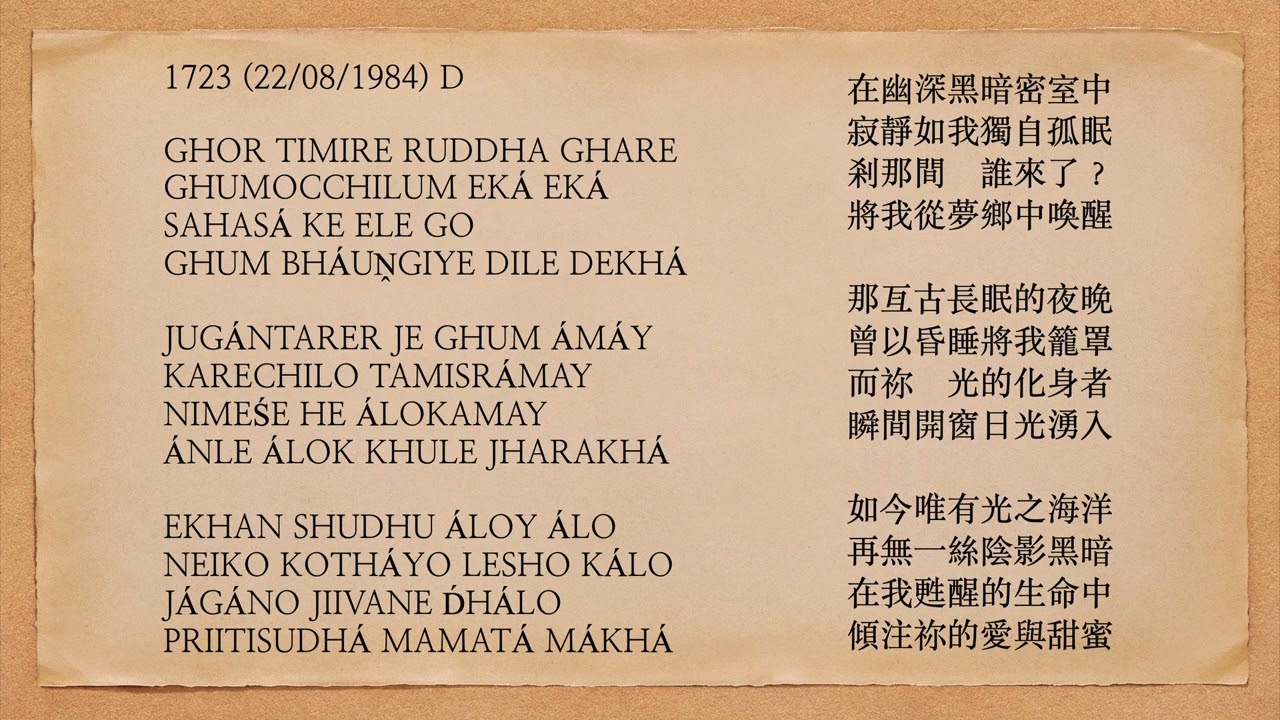 1723 (22/08/1984) D
GHOR TIMIRE RUDDHA GHARE
GHUMOCCHILUM EKÁ EKÁ
SAHASÁ KE ELE GO
GHUM BHÁUṊGIYE DILE DEKHÁ
JUGÁNTARER JE GHUM ÁMÁY
KARECHILO TAMISRÁMAY
NIMEŚE HE ÁLOKAMAY
ÁNLE ÁLOK KHULE JHARAKHÁ
EKHAN SHUDHU ÁLOY ÁLO
NEIKO KOTHÁYO LESHO KÁLO
JÁGÁNO JIIVANE D́HÁLO
PRIITISUDHÁ MAMATÁ MÁKHÁ
在幽深黑暗密室中
寂靜如我獨自孤眠
剎那間　誰來了?
將我從夢鄉中喚醒
那亙古長眠的夜晚
曾以昏睡將我籠罩
而祢　光的化身者
瞬間開窗日光湧入
如今唯有光之海洋
再無一絲陰影黑暗
在我甦醒的生命中
傾注祢的愛與甜蜜